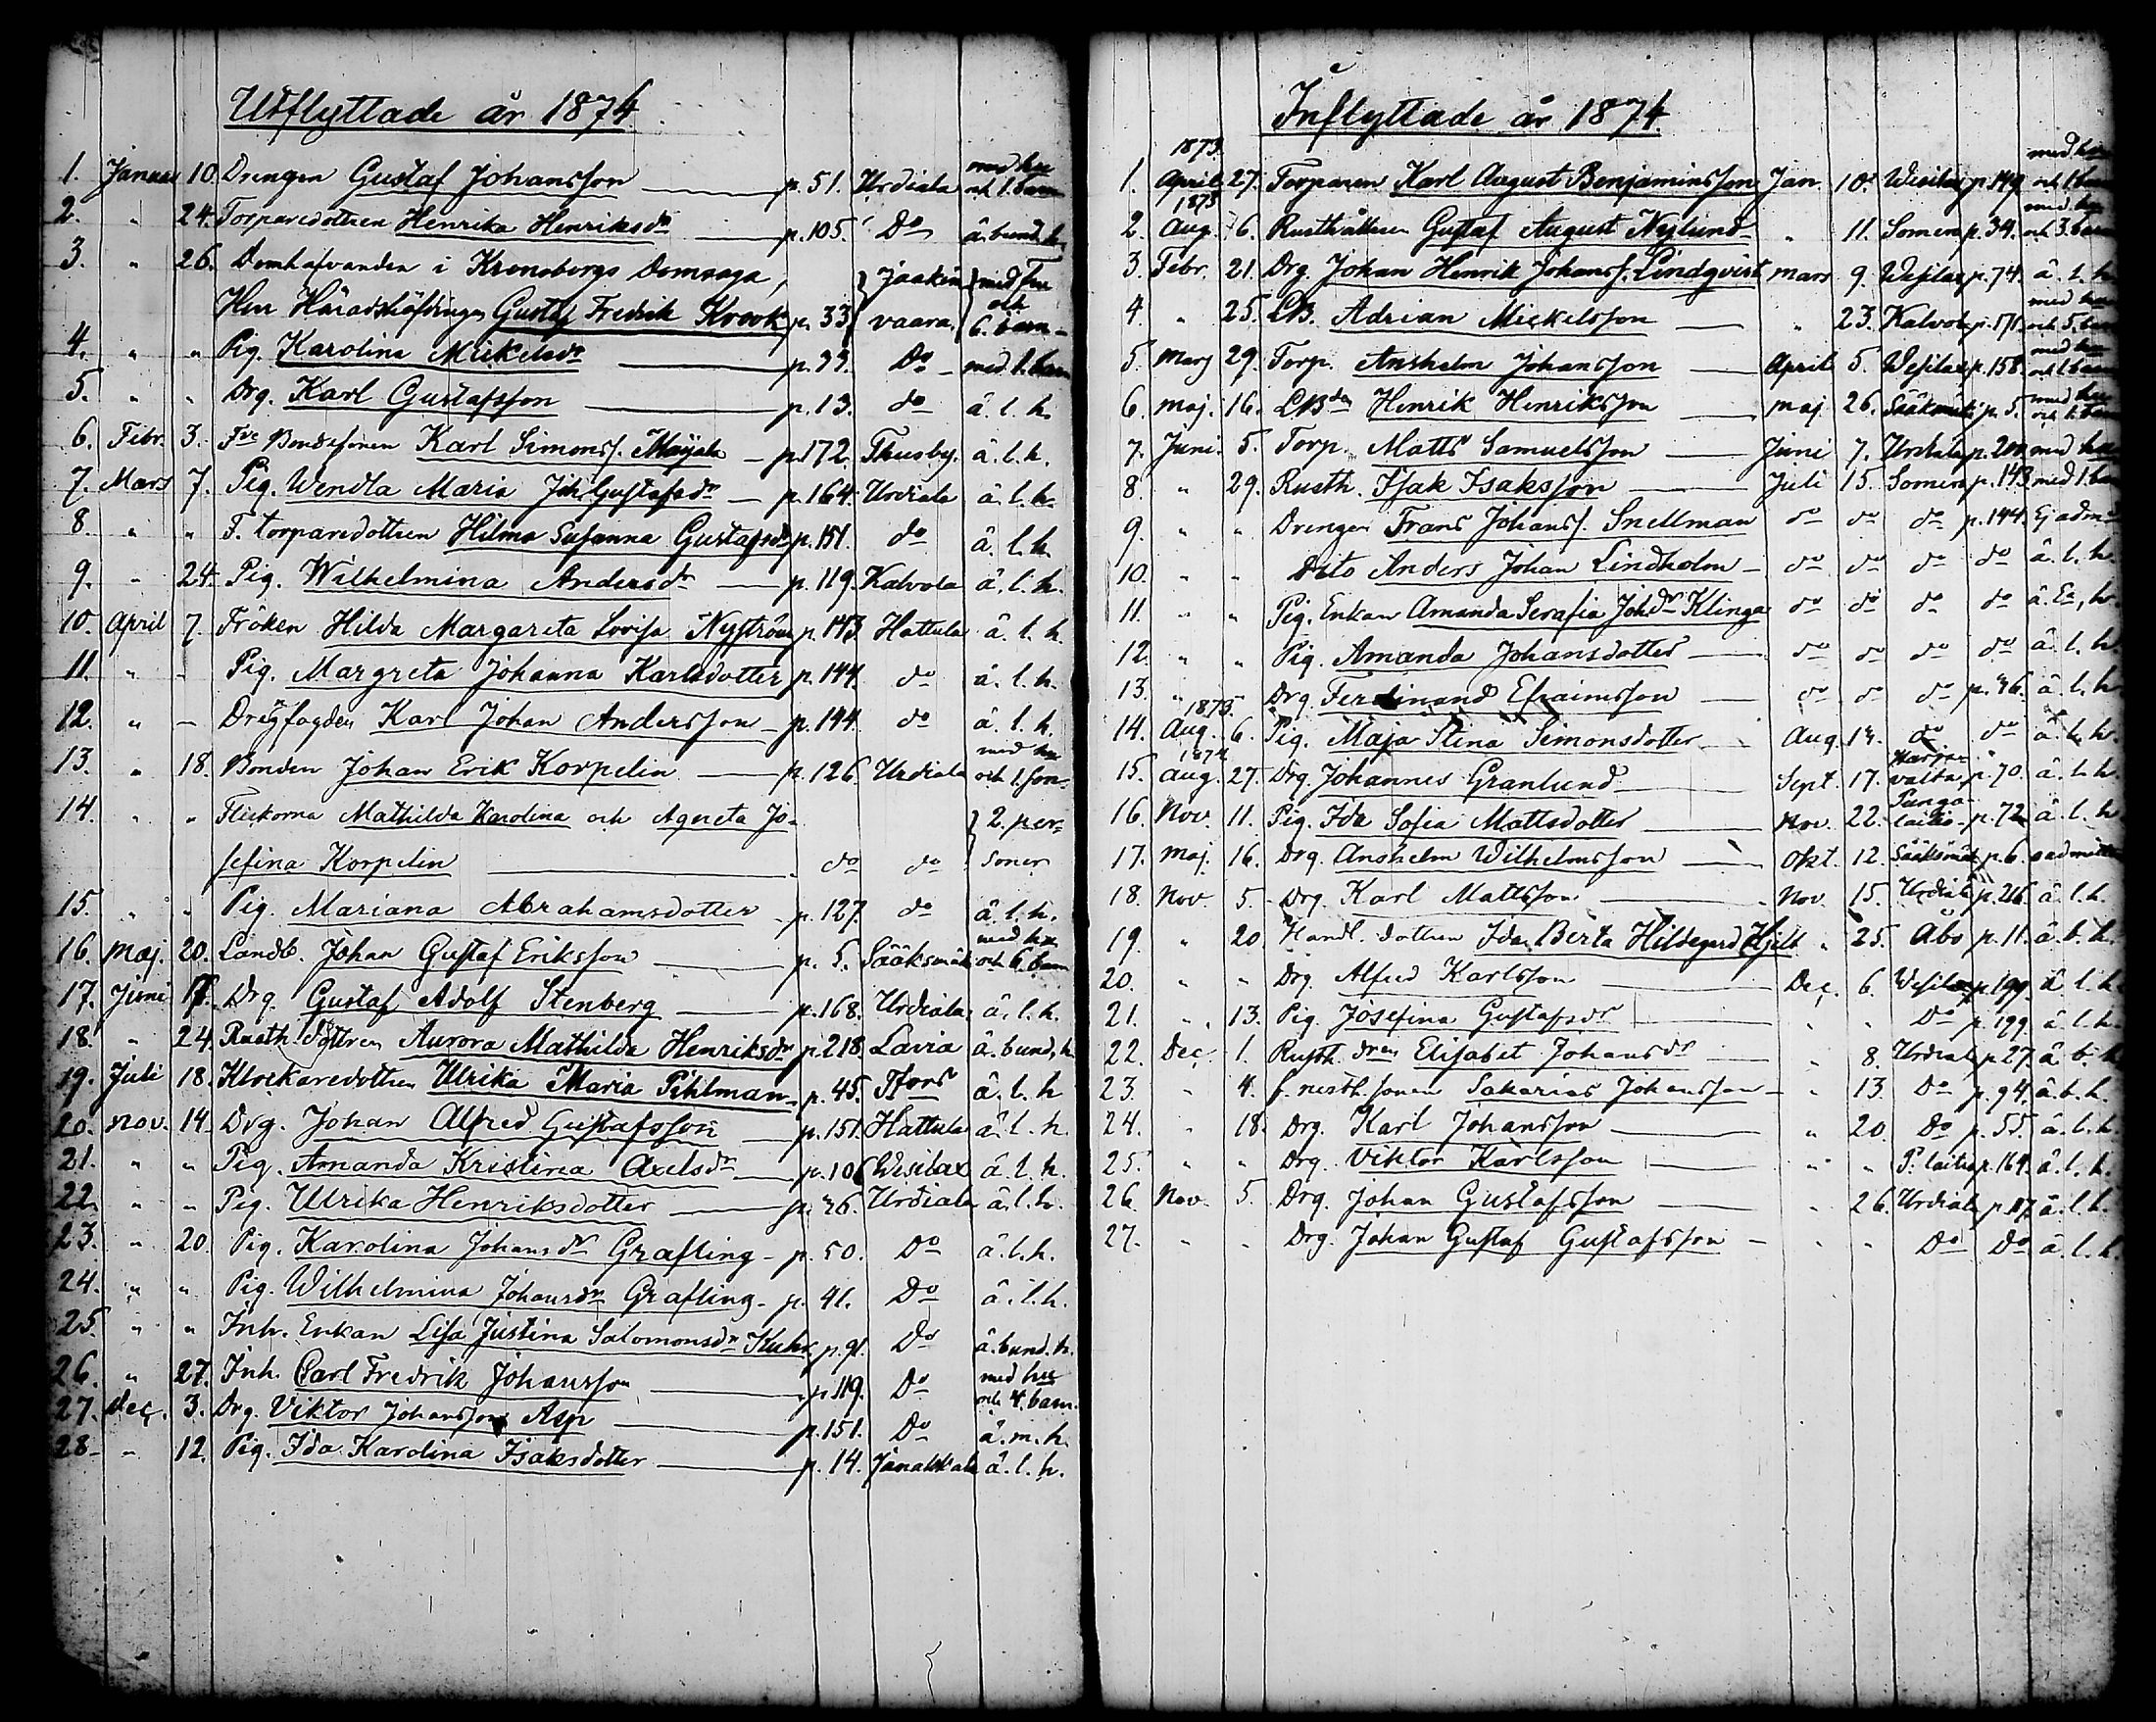 Utflyttade år 1874
1. Januar 10. Drengen Gustaf Johansson p. 51. Urdiala med hu och 1. barn
2. " 24. Torparedottren Henrika Henriksdr p. 105. Do ä. bund. h.
3. " 26. Domhafvanden i Kronoborgs Domsaga, Jaakim- med fru
Herr Häradshöfdingen Gustaf Fredrik Krook p. 33 vaara. och 6. barn
4. " " Pig. Karolina Mickelsdr p. 33. Do med 1. barn
5. " " Drg. Karl Gustafsson p. 13. do ä. l. h.
6. Febr. 3. Fre Bondesonen Karl Simonss. Maijala p. 172. Thusby. ä. l. h.
7. Mars 7. Pig. Wendla Maria Joh Gustafsdr p. 164. Urdiala ä. l. h.
8. " " F. torparedottren Hilma Susanna Gustafsdr p. 151. do ä. l. h.
9. " 24. Pig. Wilhelmina Andersdr p. 119. Kalvola ä. l. h.
10. April 7. Fröken Hilda Margareta Lovisa Nyström p. 143. Hattula ä. l. h.
11. " - Pig. Margreta Johanna Karlsdotter p. 144. do ä. l. h.
12. " - Drgfogden Karl Johan Andersson p. 144. do ä. l. h.
13. " 18. Bonden Johan Erik Korpelin p. 126. Urdiala med hu och 1. son
14. " " Flickorna Mathilda Karolina och Agneta Jo- 2. per-
sefina Korpelin do do soner
15. " " Pig. Mariana Abrahamsdotter p. 127. do ä. l. h.
16. Maj. 20. Landb. Johan Gustaf Eriksson p. 5. Sääksmäki med hu och 6. barn
17. Juni 17. Drg. Gustaf Adolf Stenberg p. 168. Urdiala ä. l. h.
18. " 24. Rusth. dottren Aurora Mathilda Henriksdr p. 218. Lavia ä. bund. h.
19. Juli 18. Klockaredottren Ulrika Maria Pihlman p. 45. Tfors ä. l. h
20. Nov. 14. Drg. Johan Alfred Gustafsson p. 151. Hattula ä. l. h.
21. " " Pig. Amanda Kristina Axelsdr p. 106 Wesilax ä. l. h.
22. " " Pig. Ulrika Henriksdotter p. 46. Urdiala ä. l. h.
23. " 20. Pig. Karolina Johansdr Grafling p. 50. Do ä. l. h.
24. " " Pig. Wilhelmina Johansdr Grafling p. 41. Do ä. l. h.
25. " " Inh. Enkan Lisa Justina Salomonsdr p. 91. Do ä. bund. h.
26. " 27. Inh. Carl Fredrik Johansson p. 119. Do med hu och 4. barn.
27. Dec. 3. Drg. Viktor Johansson Asp p. 151. Do ä. m. h.
28. " 12. Pig. Ida Karolina Isaksdotter p. 14. Janakkala ä. l. h.
Inflyttade år 1874.
1. 1873. April 27. Torparen Karl August Benjaminsson Jan. 10. Wesilax p. 149. med hu och 1 barn
2. 1873 Aug. 6. Rusthållaren Gustaf August Nylund " 11. Somero p. 34. med hu och 3. barn
3. Febr. 21. Drg. Johan Henrik Johanss. Lindqvist Mars 9. Wesilax p. 74. ä. l. h
4. " 25. LB. Adrian Mickelsson " 23. Kalvola p. 171. med hu och 5. barn
5. Mars 29. Torp. Anshelm Johansson April 5. Wesilax p. 158. med hu och 1 barn
6. Maj. 16. LBden Henrik Henriksson Maj 26. Sääksmäki p. 5. med hu och 1. barn
7. Juni. 5. Torp. Matts Samuelsson Juni 7. Urdiala p. 200. med hu
8. " 29. Rusth. Isak Isaksson Juli 15. Somero p. 143 med 1. barn
9. " " Drengen Frans Johanss. Snellman do do do p. 144. Ej adm.
10. " " Dito Anders Johan Lindholm do do do do ä. l. h.
11. " " Pig. Enkan Amanda Serafia Johdr Klinga do do do do ä. E, h.
12. " " Pig. Amanda Johansdotter do do do do ä. l. h.
13. " - Drg Ferdinand Efraimsson do do do p. 46. ä. l. h
14. 1873. Aug. 6. Pig. Maja Stina Simonsdotter Aug. 14. do do ä. l. h.
15. 1874 Aug. 27. Drg. Johannes Granlund Sept. 17. Harja- valta, p. 70. ä. l. h.
16. Nov. 11. Pig. Ida Sofia Mattsdotter Nov. 22. Punga- laitio p. 72 ä. l. h
17. Maj. 16. Drg. Anshelm Wilhelmsson Okt. 12. Sääksmäki p. 6. oadmitter
18. Nov. 5. Drg. Karl Mattsson Nov. 15. Urdiala p. 216. ä. l. h.
19. " 20. Handl. dottren Ida Berta Hildegard Hjelt " 25. Åbo p. 11. ä. b. h.
20. " " Drg. Alfred Karlsson Dec. 6. Wesilax p. 199. ä. l. h.
21. " 13. Pig. Josefina Gustafsdr " " Do p. 199. ä. l. h.
22. Dec. 1. Rusth. dren Elisabet Johansdr " 8. Urdiala p. 27. ä. b. h
23. " 4. f. rusth. sonen Sakarias Johansson " 13. Do p. 94. ä. b. h.
24. " 18. Drg. Karl Johansson " 20. Do p. 55. ä. l. h.
25. " " Drg. Viktor Karlsson " " P. laitio p. 164. ä. l. h.
26. Nov. 5. Drg. Johan Gustafsson " 26. Urdiala p. 117. ä. l. h.
27. " " Drg. Johan Gustaf Gustafsson " " Do Do ä. l. h.